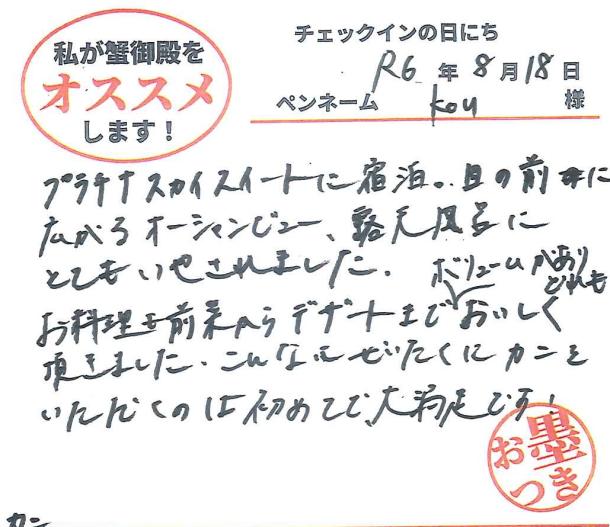 私が蟹御殿を
オススメ
します！
チェックインの日にち
R6 年 8 月 18 日
ペンネーム kou 様
プラチナスカイスイートに宿泊。目の前に
広がるオーシャンビュー、露天風呂に
とてもいやされました。
ボリュームがあり
どれも
お料理も前菜からデザートまでおいしく
頂きました。こんなにぜいたくにカニを
いただくのは初めてで、大満足です！
お墨つき
カニ